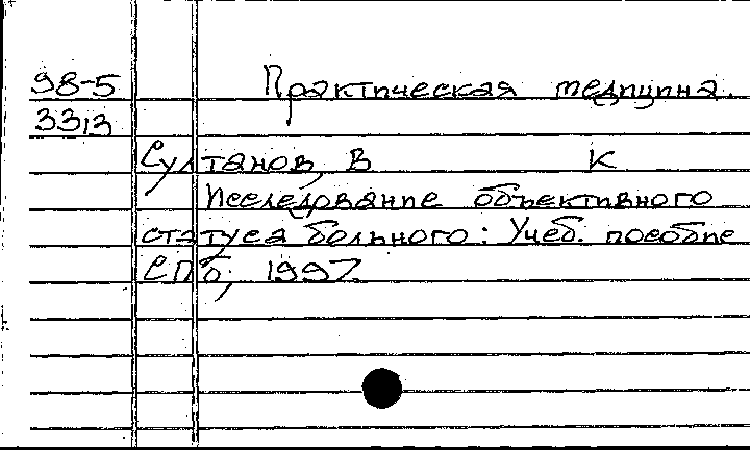 98-5 Практическая медицина.
33,3
Султанов, В К
Исследование объективного
статуса больного: Учеб. пособие
СПб, 1997.